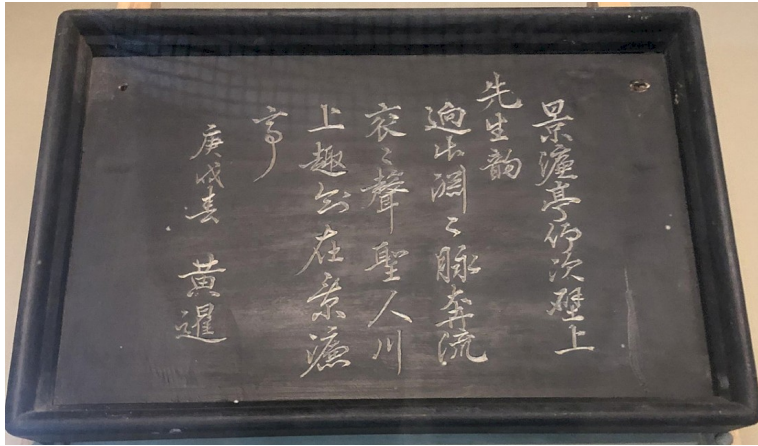 景濂亭仰次壁上
先生韵
逈出淵〻脉奔流
衮〻聲聖人川
上趣都在景濂
亭
庚戌春 黃暹